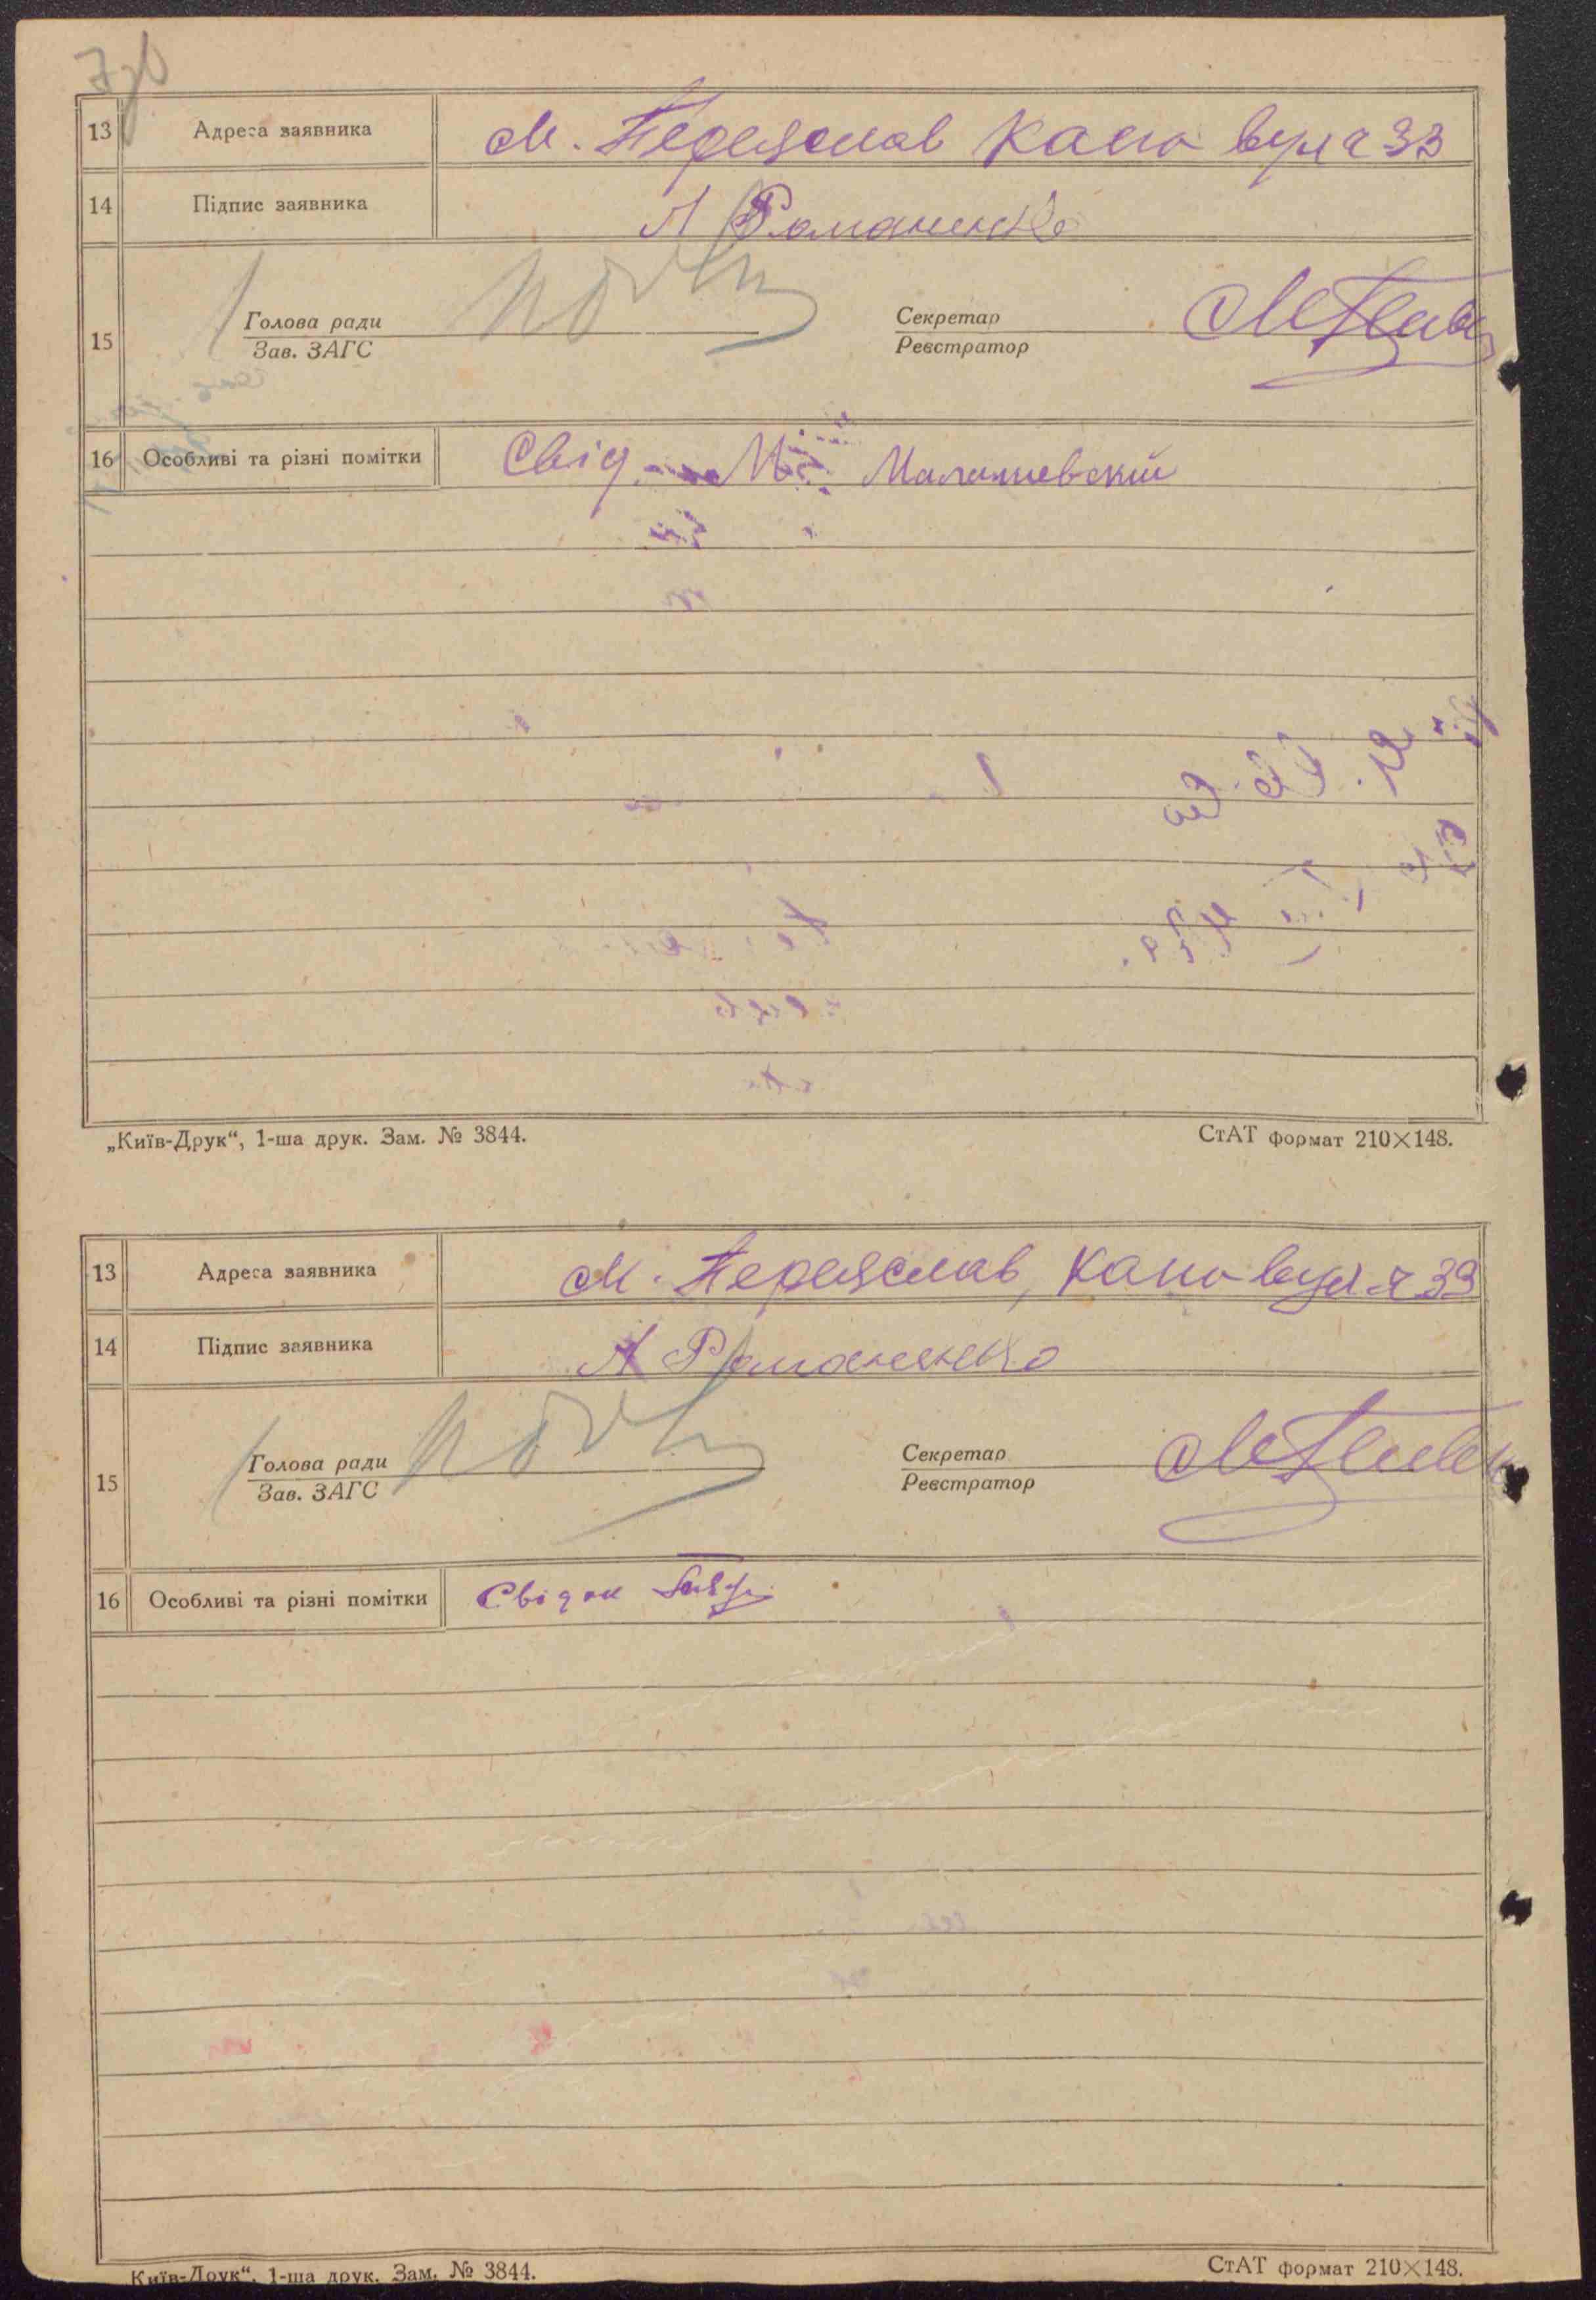 7зв
13 Адреса заявника м. Переяслав Кано вул ч 33
14 Підпис заявника А Романенко
15 Голова ради Секретар
Зав. ЗАГС Реєстратор
16 Особливі та різні помітки Свід. Малишевский
„Київ-Друк“, 1-ша друк. Зам. № 3844. СтАТ формат 210×148.
13 Адреса заявника м. Переяслав, Кано вул ч 33
14 Підпис заявника А Романенко
15 Голова ради Секретар
Зав. ЗАГС Реєстратор
16 Особливі та різні помітки Свідок
Київ-Друк“, 1-ша друк. Зам. № 3844. СтАТ формат 210×148.